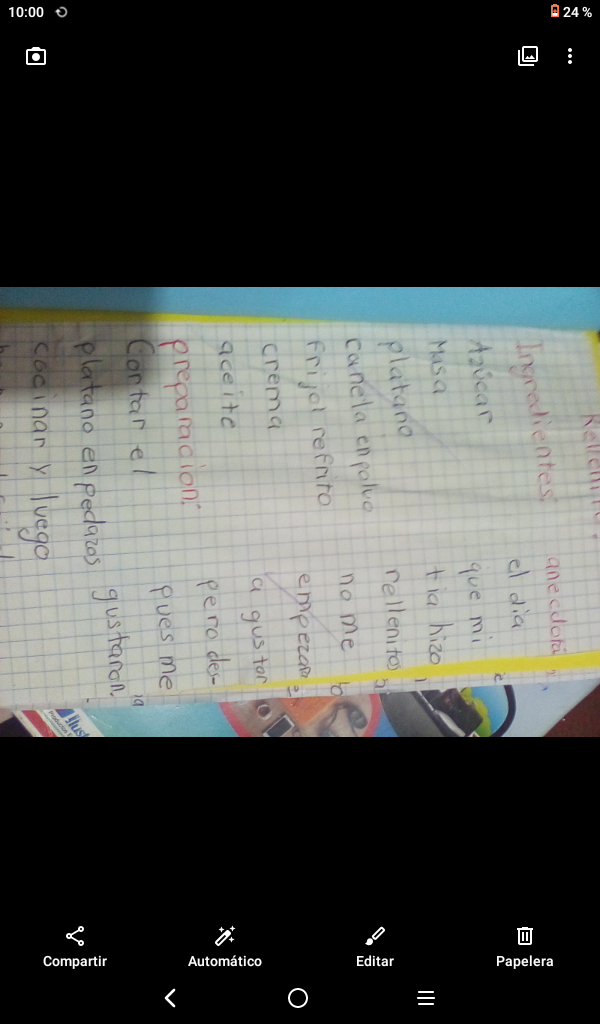 10:00
24 %
Rellenito.
Ingredientes
Azúcar
Masa
platano
canela en polvo
frijol refrito
crema
aceite
preparacion:
Cortar el
platano en pedazos
cocinar y luego
anecdota
el dia
que mi
tia hizo
rellenitos
no me
empezaron
a gustar
pero des-
pues me
gustaron.
Compartir
Automático
Editar
Papelera